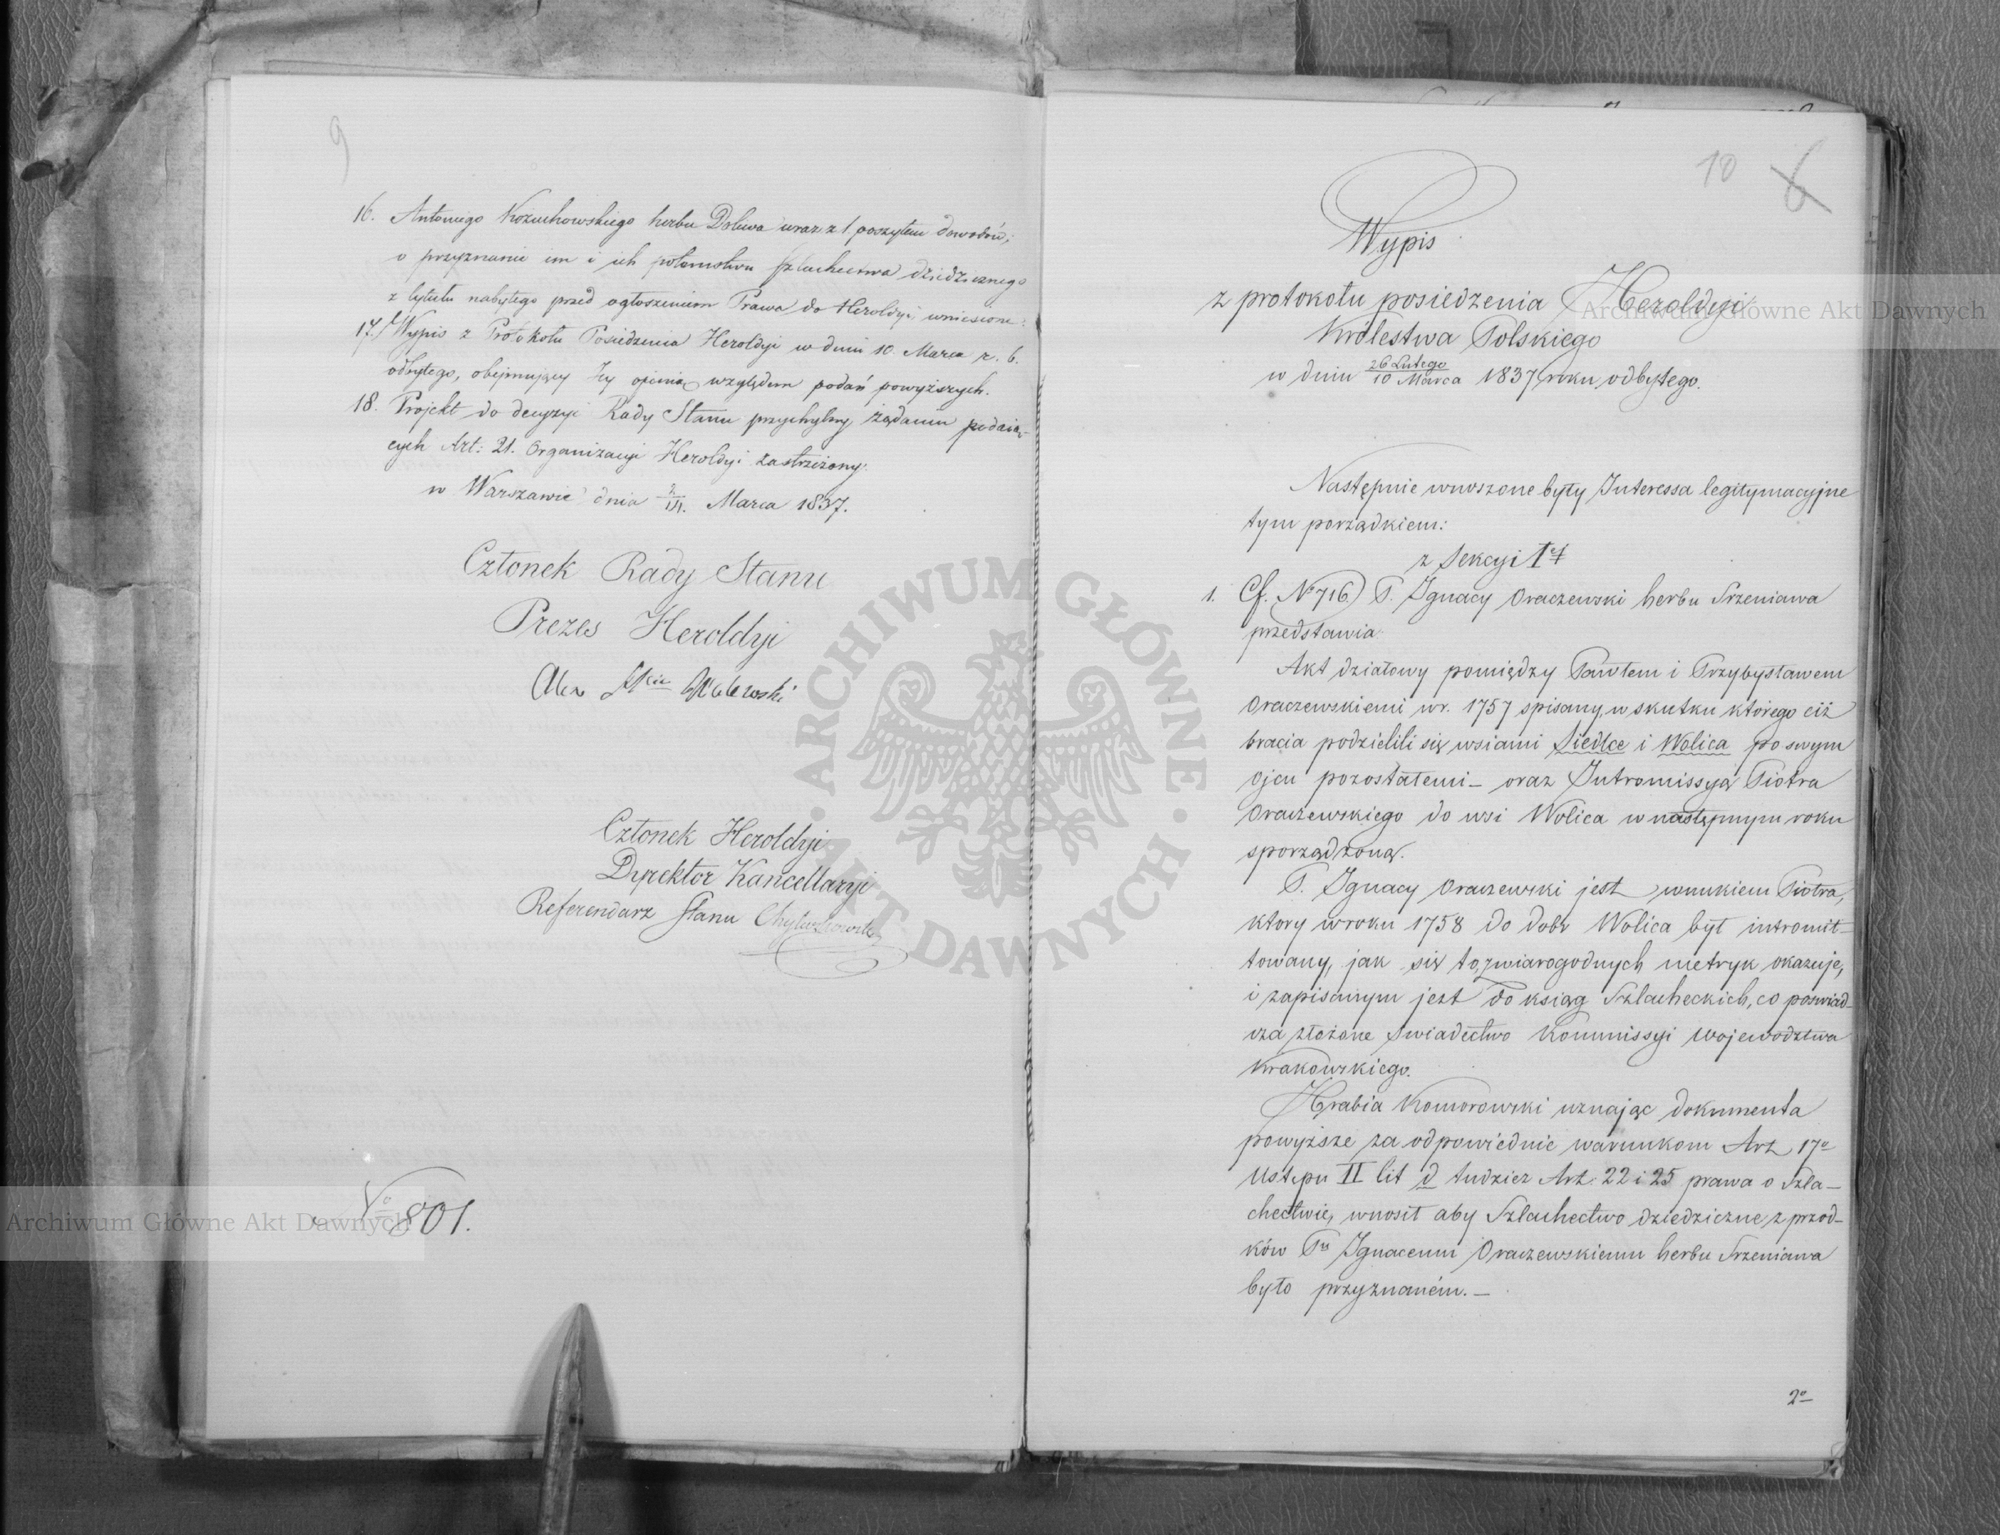 9
16. Antoniego Kożuchowskiego herbu Doliwa wraz z 1 poszytem dowodów;
o przyznanie im i ich potomstwu szlachectwa dziedzicznego
z tytułu nabytego przed ogłoszeniem Prawa do Heroldyi wniesione:
17. Wypis z Protokołu Posiedzenia Heroldyi w dniu 10. Marca r. b.
odbytego, obejmujący Jey opinią względem podań powyższych.
18. Projekt do decyzyi Rady Stanu przychylny żądaniu podaią-
cych Art: 21. Organizacyi Heroldyi zastrzeżony.
w Warszawie dnia Marca 1837.
Członek Rady Stanu
Prezes Heroldyi
Członek Heroldyi
Dyrektor Kancellaryi
Referendarz Stanu
No 801.
10 6
Wypis
z protokołu posiedzenia Heroldyi
Królestwa Polskiego
w dniu 26 Lutego / 10 Marca 1837 roku odbytego.
Następnie wnoszone były Interessa legitymacyjne
tym porządkiem:
z Sekcyi Iej
1. Cf. No 716) P. Ignacy Oraczewski herbu Srzeniawa
przedstawia:
Akt działowy pomiędzy Pawłem i Przybysławem
Oraczewskiemi w r. 1757 spisany, w skutku którego ciż
bracia podzielili się wsiami Siedlce i Wolica po swym
ojcu pozostałemi – oraz Intromissyą Piotra
Oraczewskiego do wsi Wolica w następnym roku
sporządzoną.
P. Ignacy Oraczewski jest wnukiem Piotra,
który w roku 1758 do dobr Wolica był intromit-
towany, jak się to z wiarogodnych metryk okazuje,
i zapisanym jest do ksiąg Szlacheckich, co poswiad-
cza złożone swiadectwo Kommissyi Wojewodztwa
Krakowskiego.
Hrabia Komorowski uznając dokumenta
powyższe za odpowiednie warunkom Art. 17o
Ustępu II lit d tudzież Art. 22 i 25 prawa o Szla-
chectwie, wnosił aby Szlachectwo dziedziczne z przod-
ków Pu Ignacemu Oraczewskiemu herbu Srzeniawa
było przyznaném. –
2o
Archiwum Główne Akt Dawnych
Archiwum Główne Akt Dawnych
· ARCHIWUM GŁÓWNE · AKT DAWNYCH